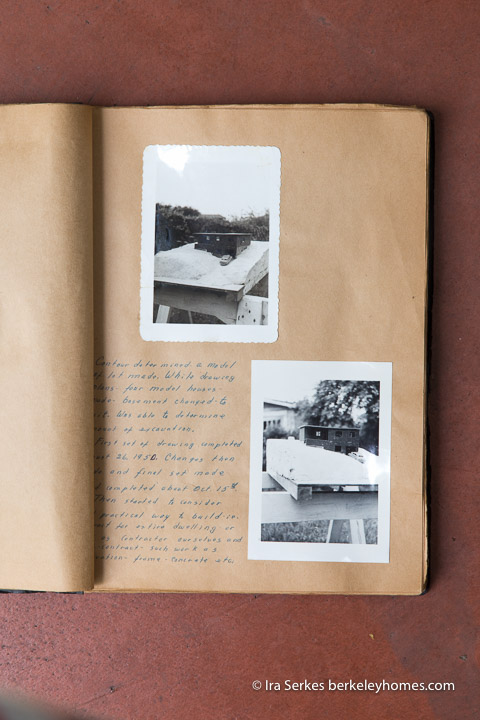 Contour determined. a model
of lot made. While drawing
four model houses
made. Basement changed to
Was able to determine
of excavation.
First set of drawing completed
26, 1950. Changes then
and final set made
completed about Oct. 15th
Then started to consider
practical way to build-
for entire dwelling or
as contractor ourselves and
contract- such work as
frame- concrete etc.
© Ira Serkes berkeleyhomes.com